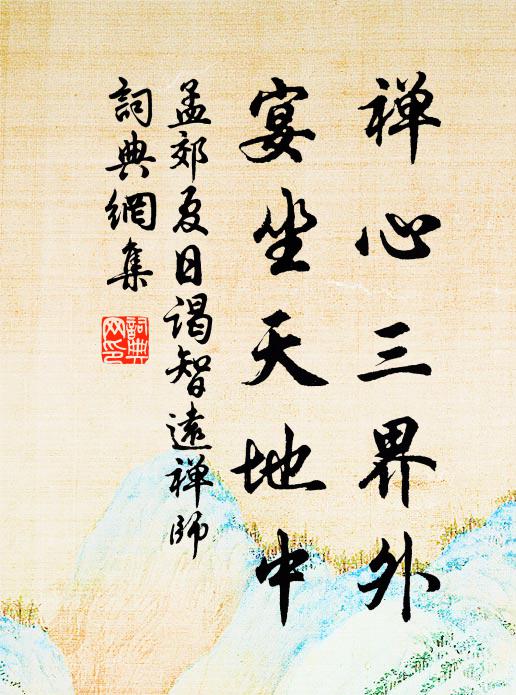 禅心三界外
宴坐天地中
孟郊夏日谒智遠禅師
詞典網集
詞典网印